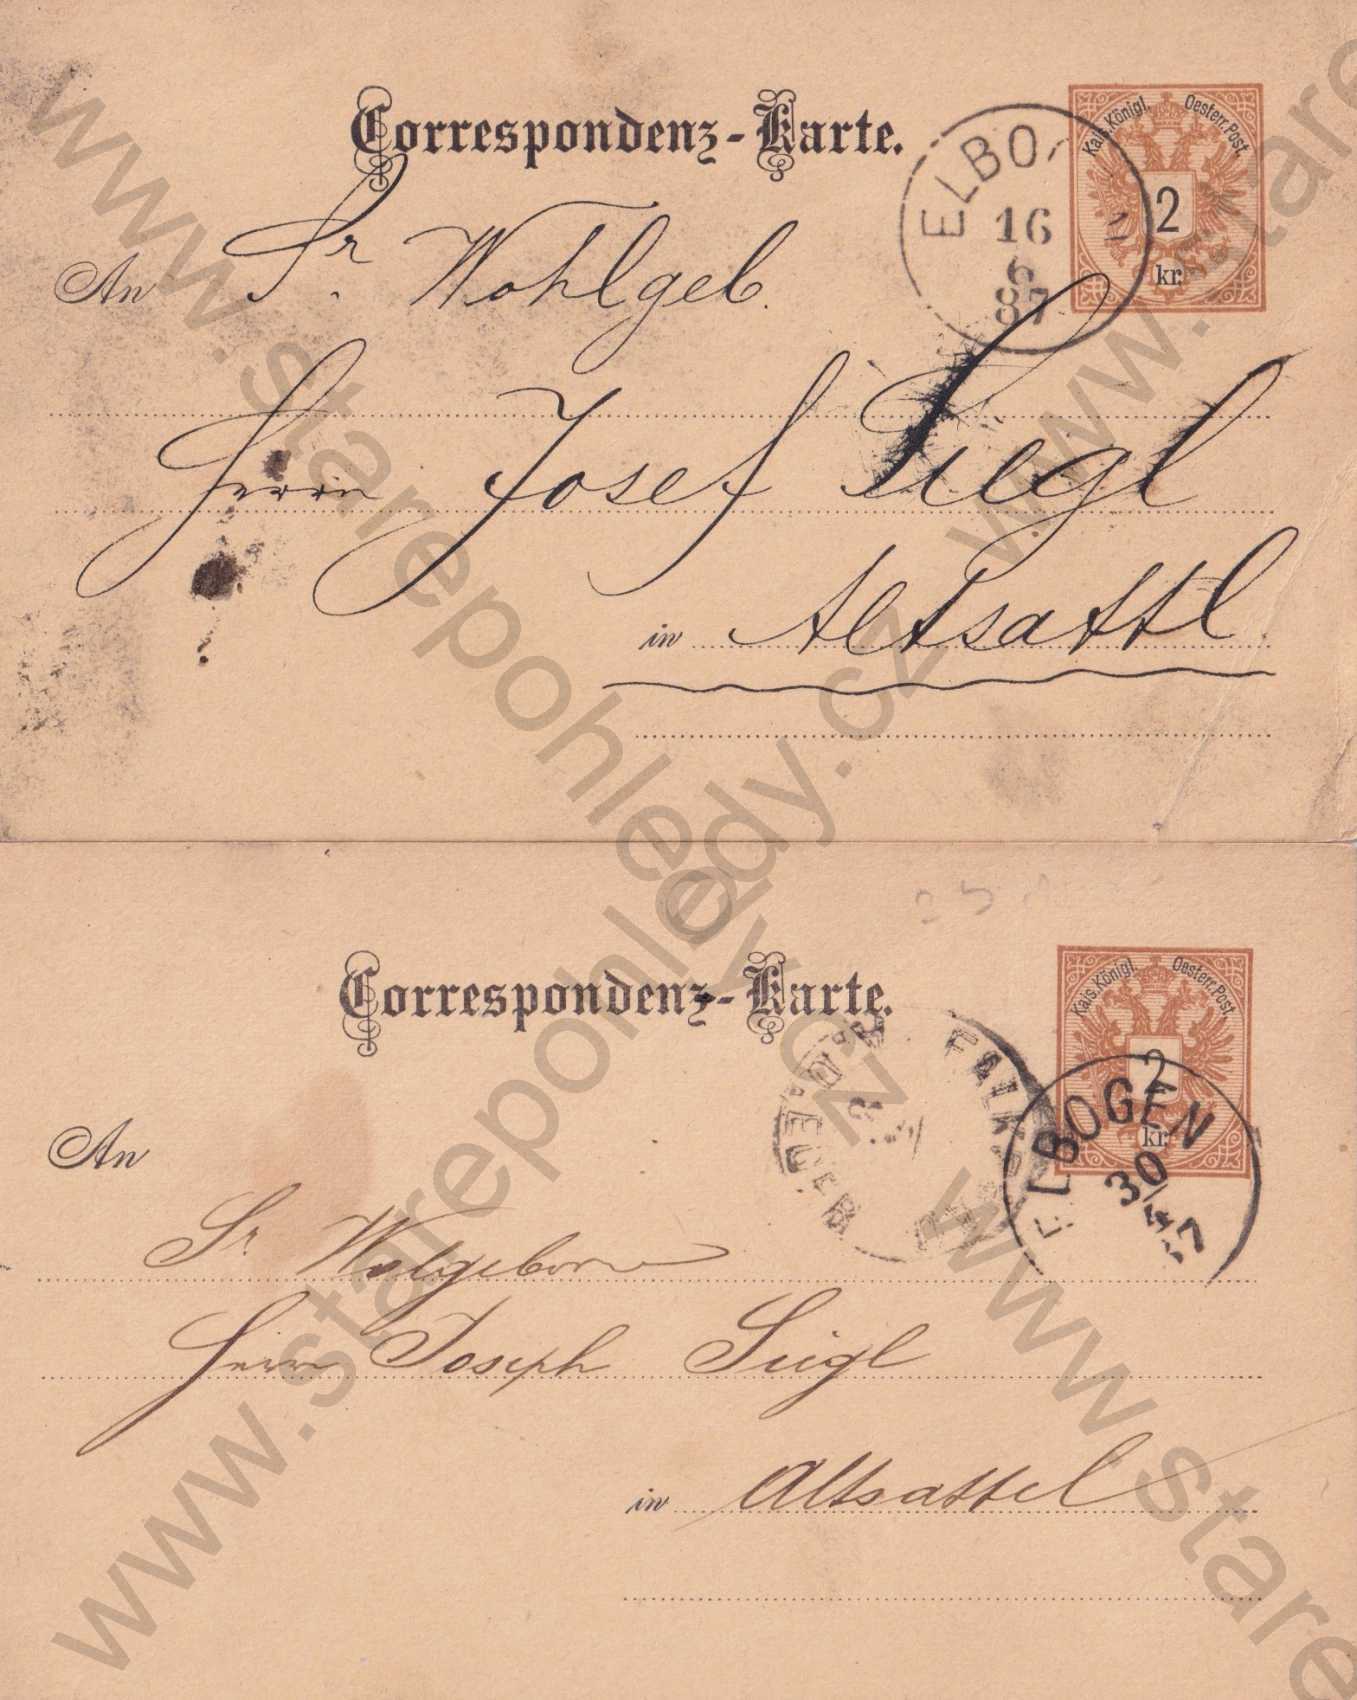 Correspondenz-Karte.
Kais. Königl. Oesterr. Post.
2
kr.
ELBO
16
6
87
An Sr Wohlgeb.
Herrn Josef Siegl
in Altsattl.
Correspondenz-Karte.
Kais. Königl. Oesterr. Post
2
kr.
ELBOGEN
30/4
87
FALK
An
Sr Wolgeborn
Herrn Joseph Siegl
in Altsattel
www.starepohledy.cz
www.starepohledy.cz
www.stare
www.stare